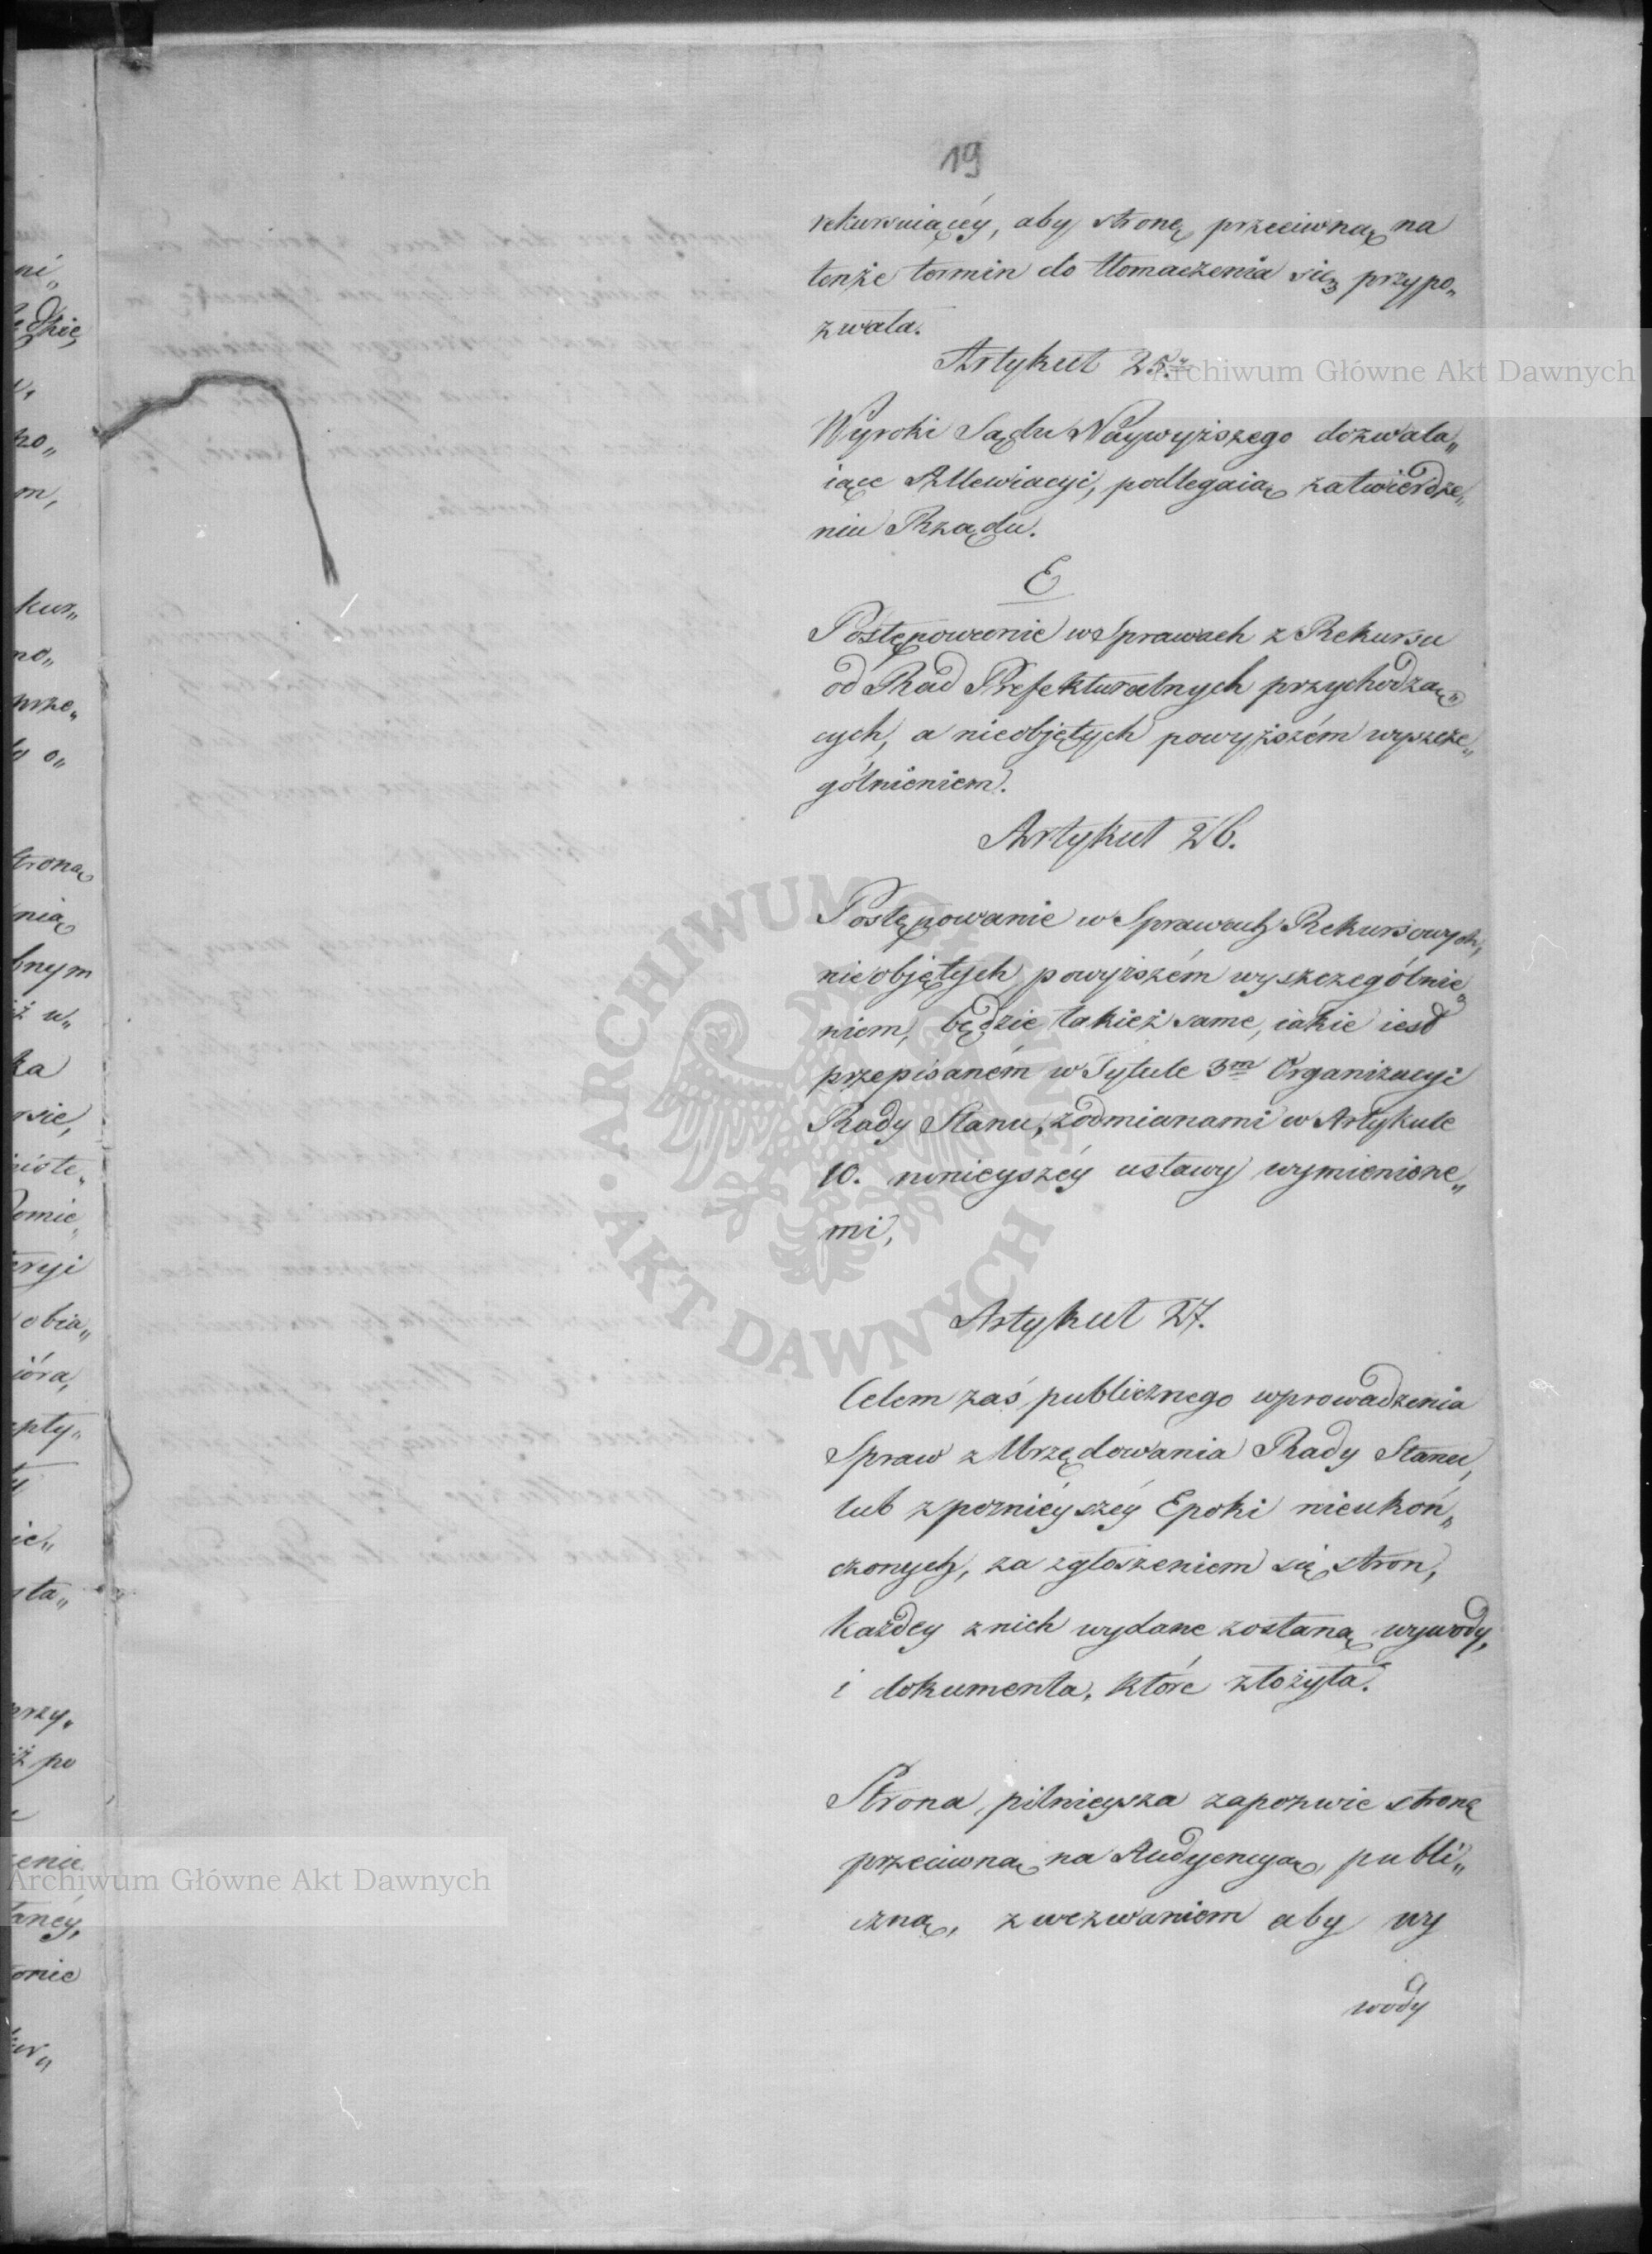 19
rekursuiącéy, aby stronę przeciwną na
tenże termin do tłomaczenia się przypo„
zwała.
Artykuł 25.ty
Wyroki Sądu Naywyższego dozwala„
iące Allewiacyi, podlegaią zatwierdze„
niu Rządu.
E
Postępowanie w Sprawach z Rekursu
od Rad Prefekturalnych przychodzą„
cych, a nieobjętych powyższém wyszcze„
gólnieniem.
Artykuł 26.
Postępowanie w Sprawach Rekursowych,
nieobjętych powyższém wyszczególnie„
niem, będzie takież same, iakie iest
przepisaném w Tytule 3m Organizacyi
Rady Stanu, z odmianami w Artykule
10. ninieyszéy ustawy wymienione„
mi,
Artykuł 27.
Celem zaś publicznego wprowadzenia
Spraw z Urzędowania Rady Stanu,
lub z poznieyszéy Epoki nieukoń„
czonych, za zgłoszeniem się stron,
każdey z nich wydane zostaną wywody,
i dokumenta, które złożyła.
Strona pilnieysza zapozwie stronę
przeciwną na Audyencyą publi„
czną, z wezwaniem aby wy
wody
ARCHIWUM GŁÓWNE AKT DAWNYCH
Archiwum Główne Akt Dawnych
Archiwum Główne Akt Dawnych